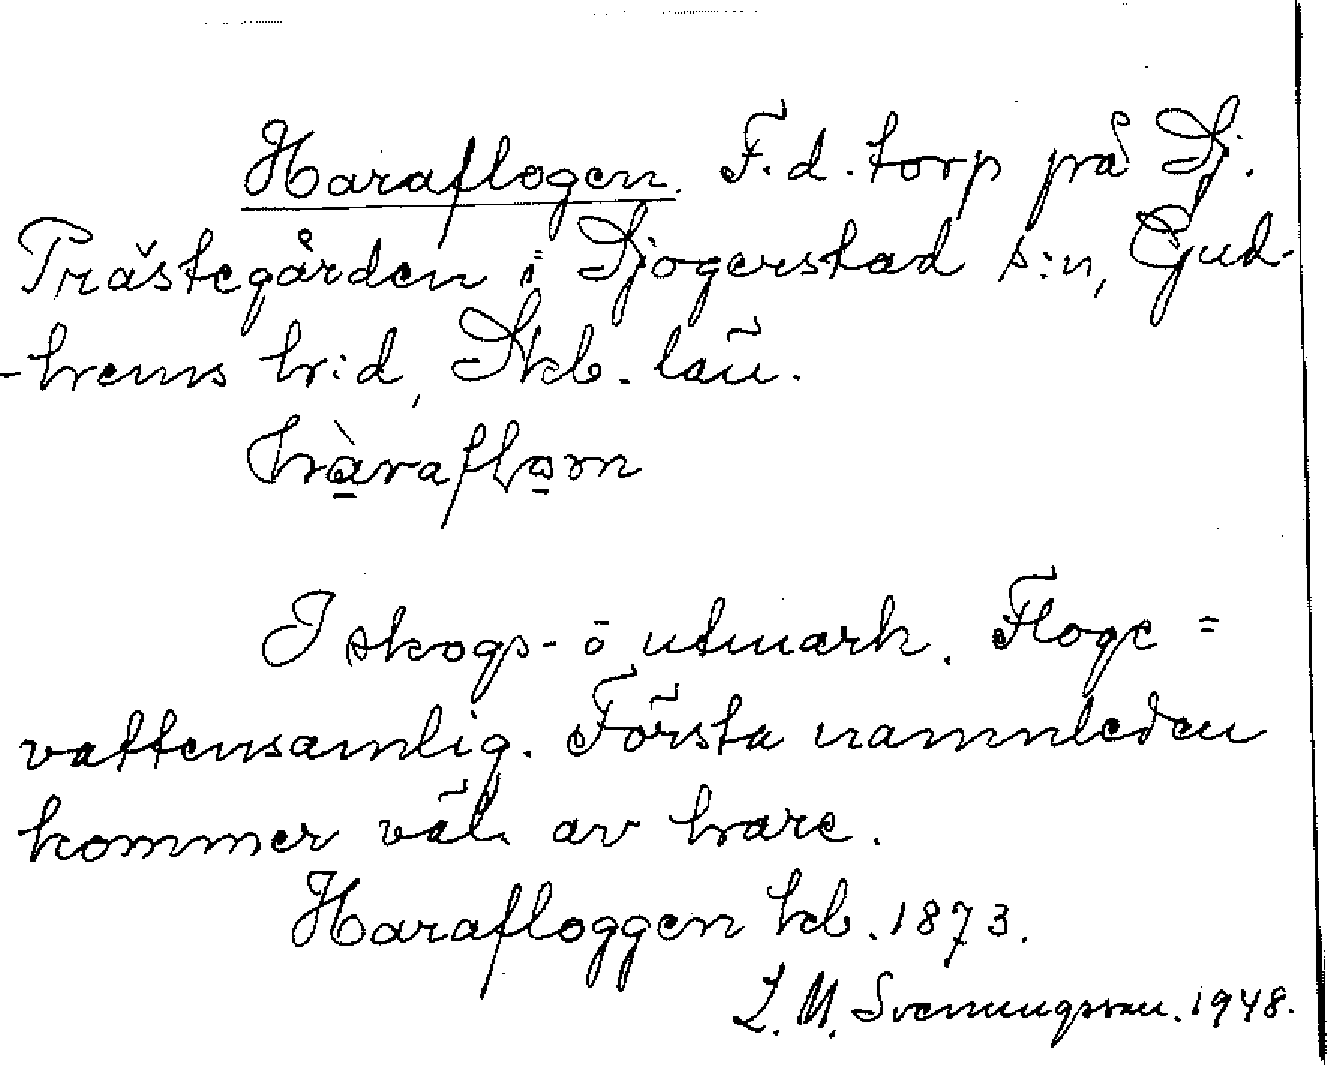 Haraflogen. F.d. torp på Sj.
Prästegården i Sjogerstad s:n, Gud-
-hems h:d, Skb. län.
hàraflo̱rn
I skogs- o utmark. Floge =
vattensamlig. Första namnleden
kommer väl av hare.
Harafloggen kb. 1873.
L. M. Svenungsson. 1948.